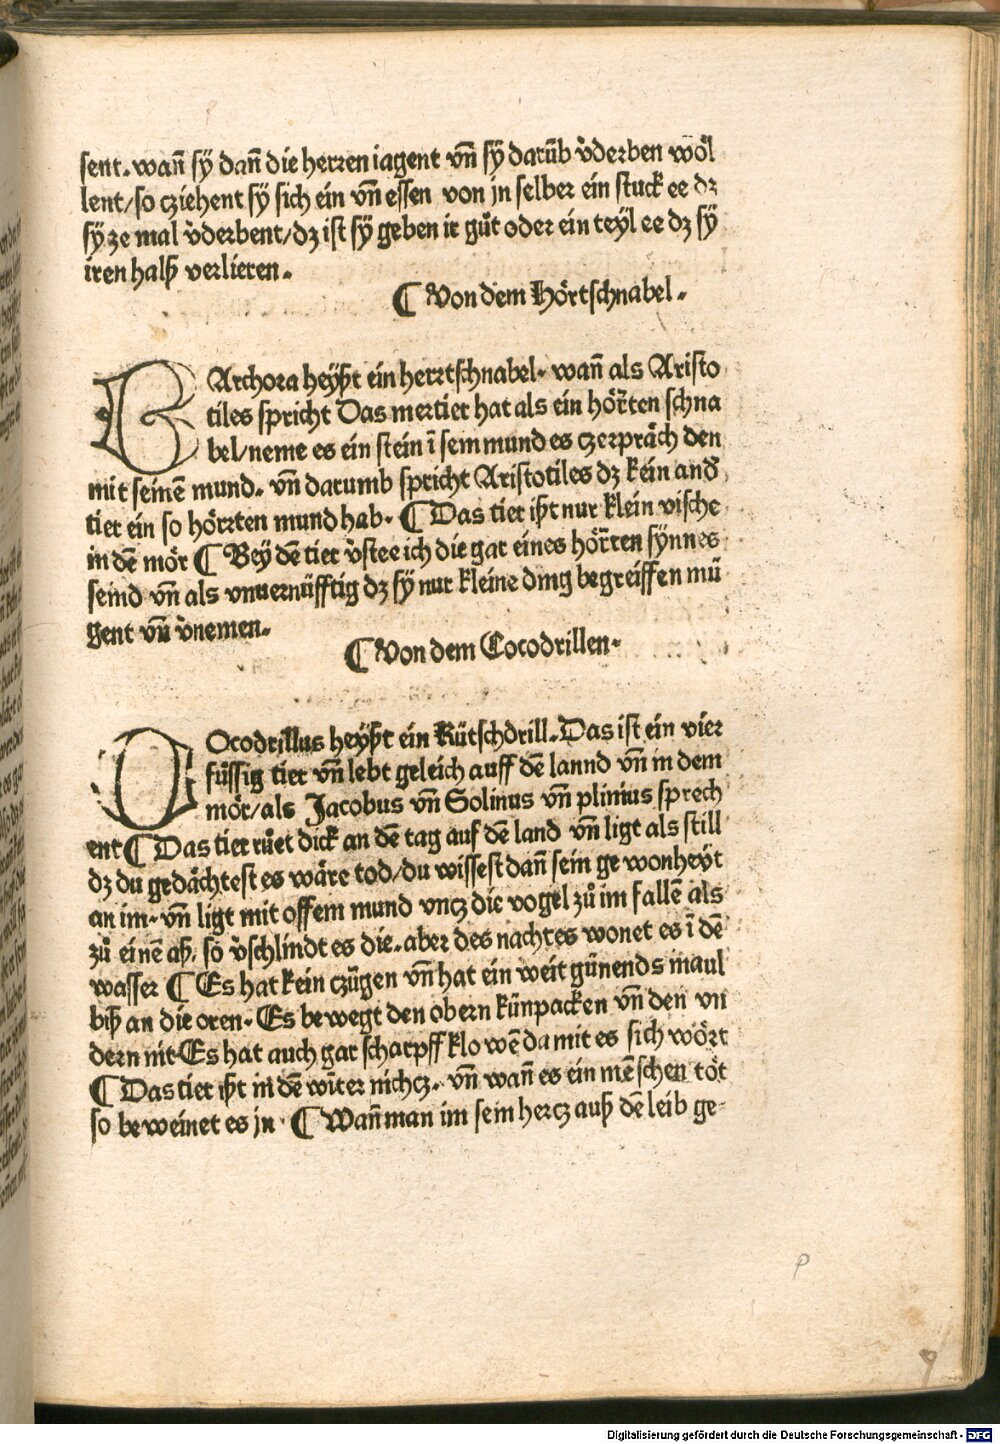 sent. wañ sÿ dañ die herren iagent vñ sÿ darūb v̉derben wöl
lent/so cziehent sÿ sich ein vñ essen von jn selber ein stuck ee dz
sÿ ze mal v̉derbent/dz ist sÿ geben ir gůt oder ein teyl ee dz sÿ
iren halß verlieren.
¶ Von dem Hörtschnabel.
BArchora heyßt ein herrtschnabel. wañ als Aristo
tiles spricht Das mertier hat als ein hörten schna
bel/neme es ein stein ī sein mund es czerpräch den
mit seinē mund. vñ darumb spricht Aristotiles dz kein and̉
tier ein so hörrten mund hab. ¶ Das tier ißt nur klein vische
in dē mör ¶ Bey dē tier v̉stee ich die gar eines hörten sÿnnes
seind vñ als vnuernüfftig dz sÿ nur kleine ding begreiffen mü
gent vñ v̉nemen.
¶ Von dem Cocodrillen.
COcodrillus heyßt ein Kütschdrill. Das ist ein vier
füssig tier vñ lebt geleich auff dē lannd vñ in dem
mör/als Jacobus vñ Solinus vñ plinius sprech
ent ¶ Das tier růet dick an dē tag auf dē land vñ ligt als still
dz du gedächtest es wäre tod/du wissest dañ sein gewonheyt
an im. vñ ligt mit offem mund vncz die vogel zů im fallē als
zů einē aß. so v̉schlindt es die. aber des nachtes wonet es ī dē
wasser ¶ Es hat kein czügen vñ hat ein weit günends maul
biß an die oren. Es bewegt den obern künpacken vñ den vn
dern nit Es hat auch gar scharpff klowē da mit es sich wört
¶ Das tier ißt in dē wīter nichcz. vñ wañ es ein mēschen töt
so beweinet es jn. ¶ Wañ man im sein hercz auß dē leib ge-
p
9
Digitalisierung gefördert durch die Deutsche Forschungsgemeinschaft - DFG